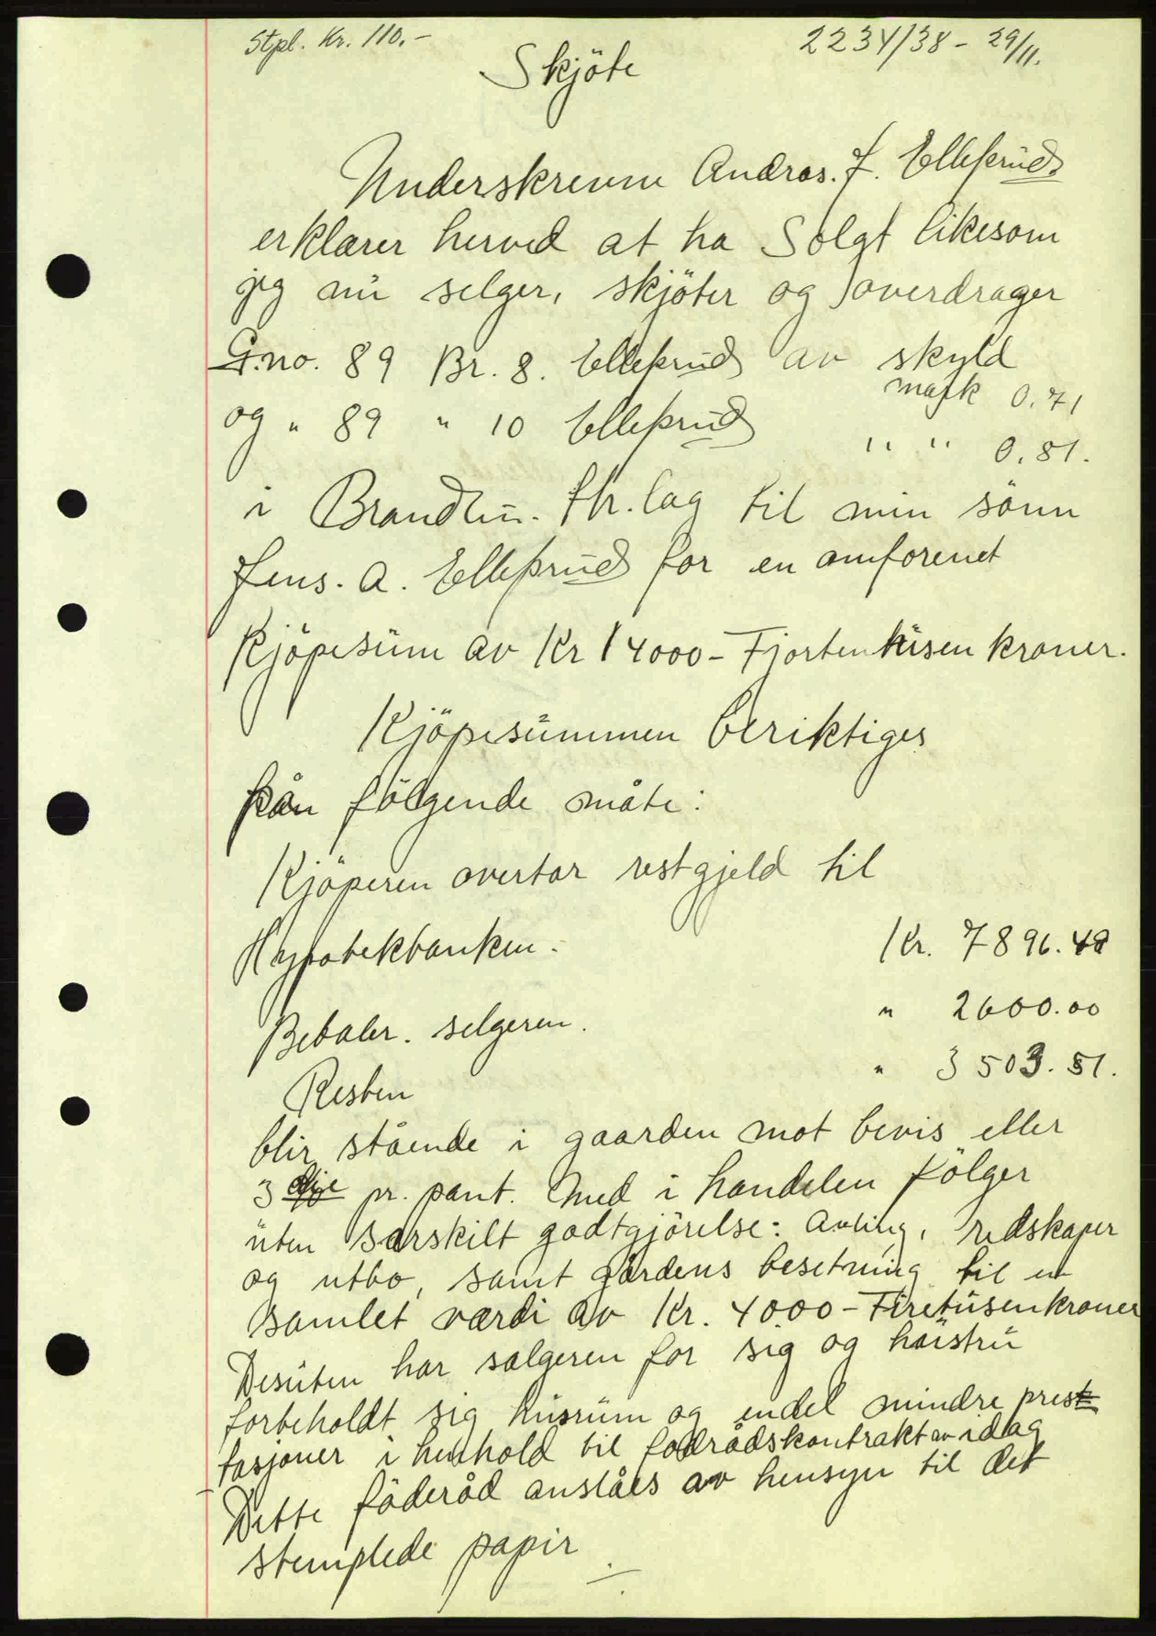 Stpl. Kr. 110.-
2234/38 - 29/11.
Skjöte
Underskrevne Andreas. J. Ellefsrud
erklærer herved at ha Solgt likesom
jeg nu selger, skjöter og overdrager
G.no. 89 Br. 8. Ellefsrud av skyld
mark 0.71
og " 89 " 10 Ellefsrud " " 0.81.
i Brandbu. th. lag til min sönn
Jens. A. Ellefsrud for en omforenet
Kjöpesum av Kr 14000 - Fjortentusen kroner.
Kjöpesummen beriktiges
på følgende måte:
Kjöperen overtar restgjeld til
Hypotekbanken. Kr. 7896.49
Betaler. selgeren. " 2600.00
Resten " 3503.51.
blir stående i gaarden mot bevis eller
3 dje pr. pant. Med i handelen følger
uten særskilt godtgjörelse: Avling, redskaper
og utbo, samt gårdens besetning til en
samlet værdi av Kr. 4000 - Firetusenkroner
Desuten har sælgeren for sig og hustru
forbeholdt sig husrum og endel mindre pres
tasjoner i henhold til föderådskontrakt av idag
Dette föderåd anslåes av hensyn til det
stemplede papir